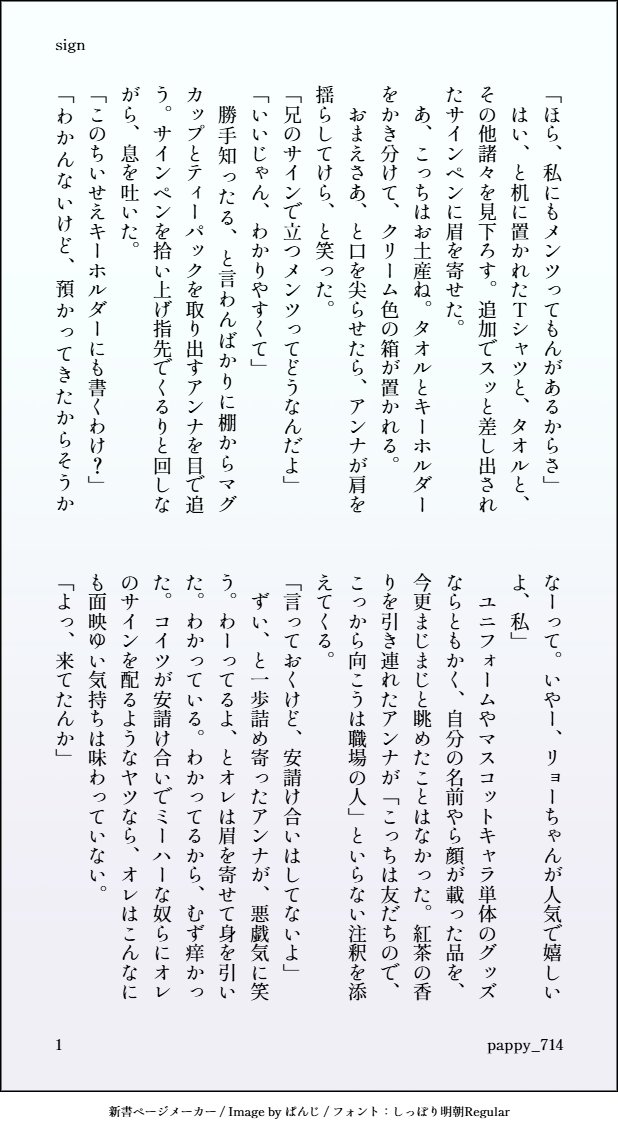 sign
「ほら、私にもメンツってもんがあるからさ」
　はい、と机に置かれたTシャツと、タオルと、
その他諸々を見下ろす。追加でスッと差し出され
たサインペンに眉を寄せた。
　あ、こっちはお土産ね。タオルとキーホルダー
をかき分けて、クリーム色の箱が置かれる。
　おまえさあ、と口を尖らせたら、アンナが肩を
揺らしてけら、と笑った。
「兄のサインで立つメンツってどうなんだよ」
「いいじゃん、わかりやすくて」
　勝手知ったる、と言わんばかりに棚からマグ
カップとティーパックを取り出すアンナを目で追
う。サインペンを拾い上げ指先でくるりと回しな
がら、息を吐いた。
「このちいせえキーホルダーにも書くわけ？」
「わかんないけど、預かってきたからそうか
なーって。いやー、リョーちゃんが人気で嬉しい
よ、私」
　ユニフォームやマスコットキャラ単体のグッズ
ならともかく、自分の名前やら顔が載った品を、
今更まじまじと眺めたことはなかった。紅茶の香
りを引き連れたアンナが「こっちは友だちので、
こっから向こうは職場の人」といらない注釈を添
えてくる。
「言っておくけど、安請け合いはしてないよ」
　ずい、と一歩詰め寄ったアンナが、悪戯気に笑
う。わーってるよ、とオレは眉を寄せて身を引い
た。わかっている。わかってるから、むず痒かっ
た。コイツが安請け合いでミーハーな奴らにオレ
のサインを配るようなヤツなら、オレはこんなに
も面映ゆい気持ちは味わっていない。
「よっ、来てたんか」
1
pappy_714
新書ページメーカー / Image by ぱんじ / フォント：しっぽり明朝Regular